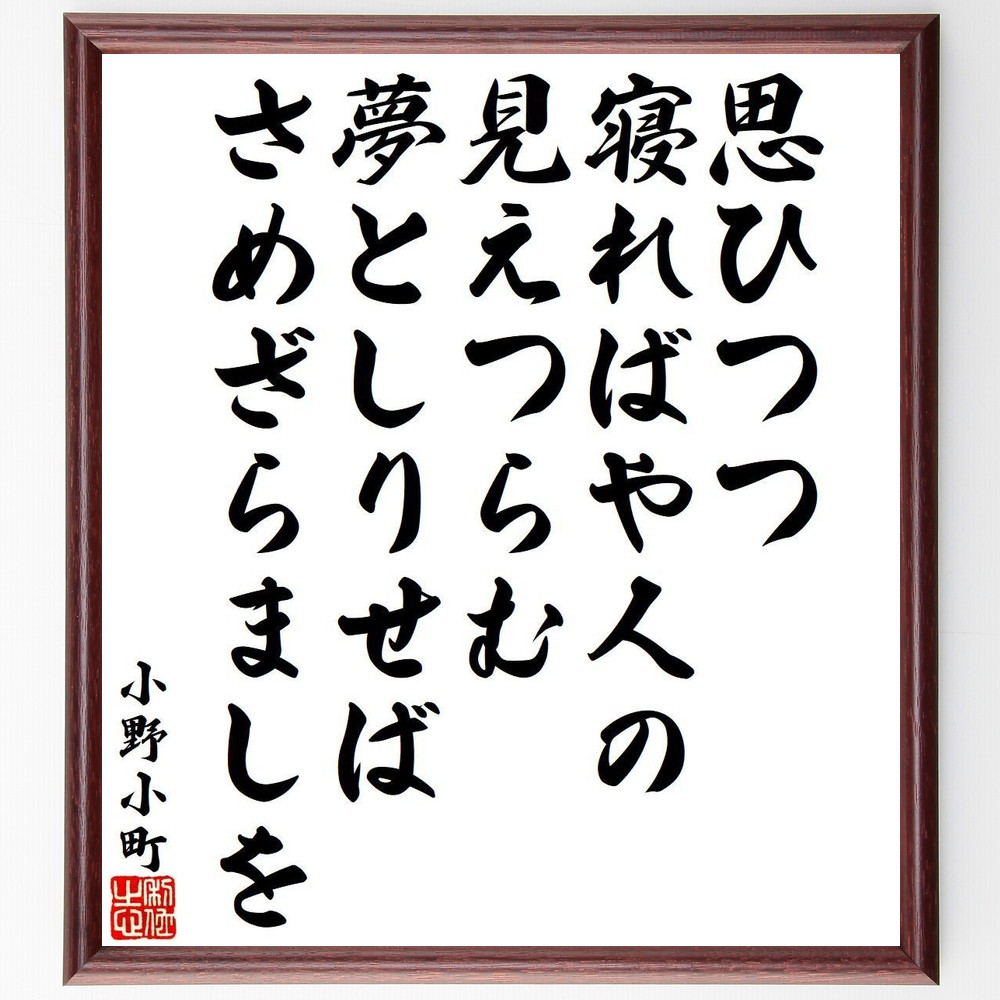 思ひつつ
寝ればや人の
見えつらむ
夢としりせば
さめざらましを
小野小町